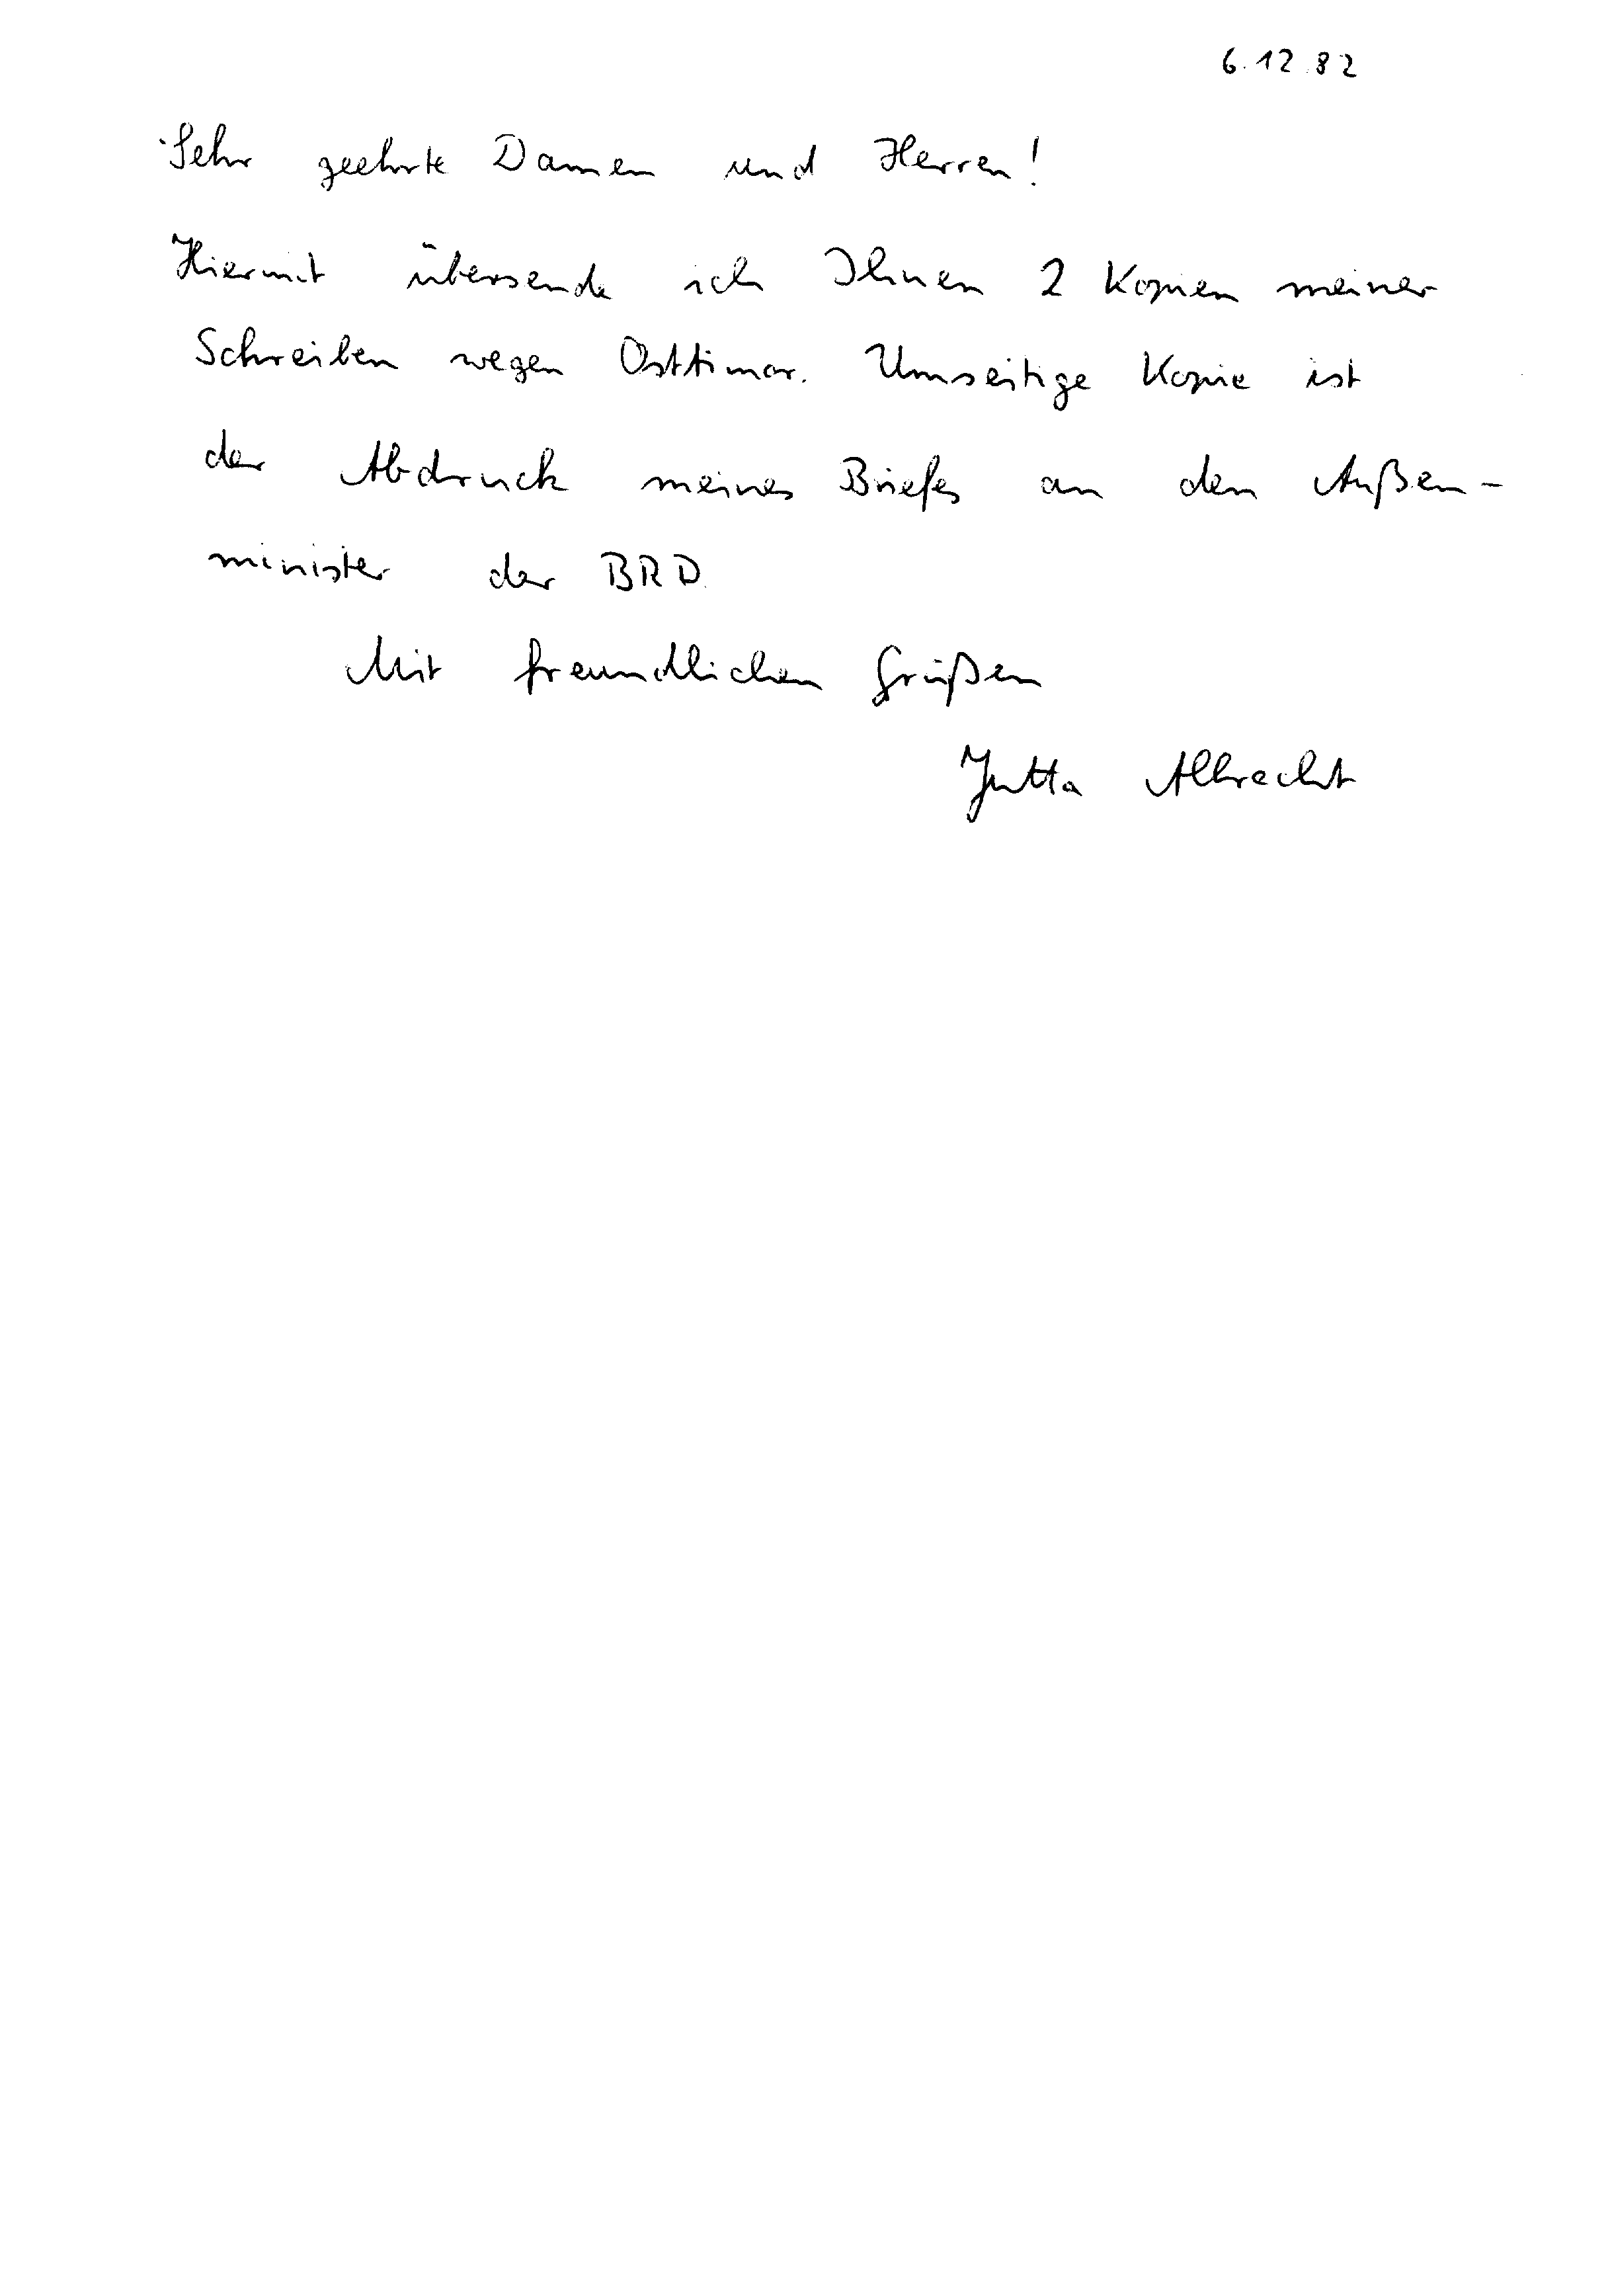 6.12.82
Sehr geehrte Damen und Herren!
Hiermit übersende ich Ihnen 2 Kopien meiner
Schreiben wegen Osttimor. Umseitige Kopie ist
der Abdruck meines Briefes an den Außen-
minister der BRD.
Mit freundlichen Grüßen
Jutta Albrecht